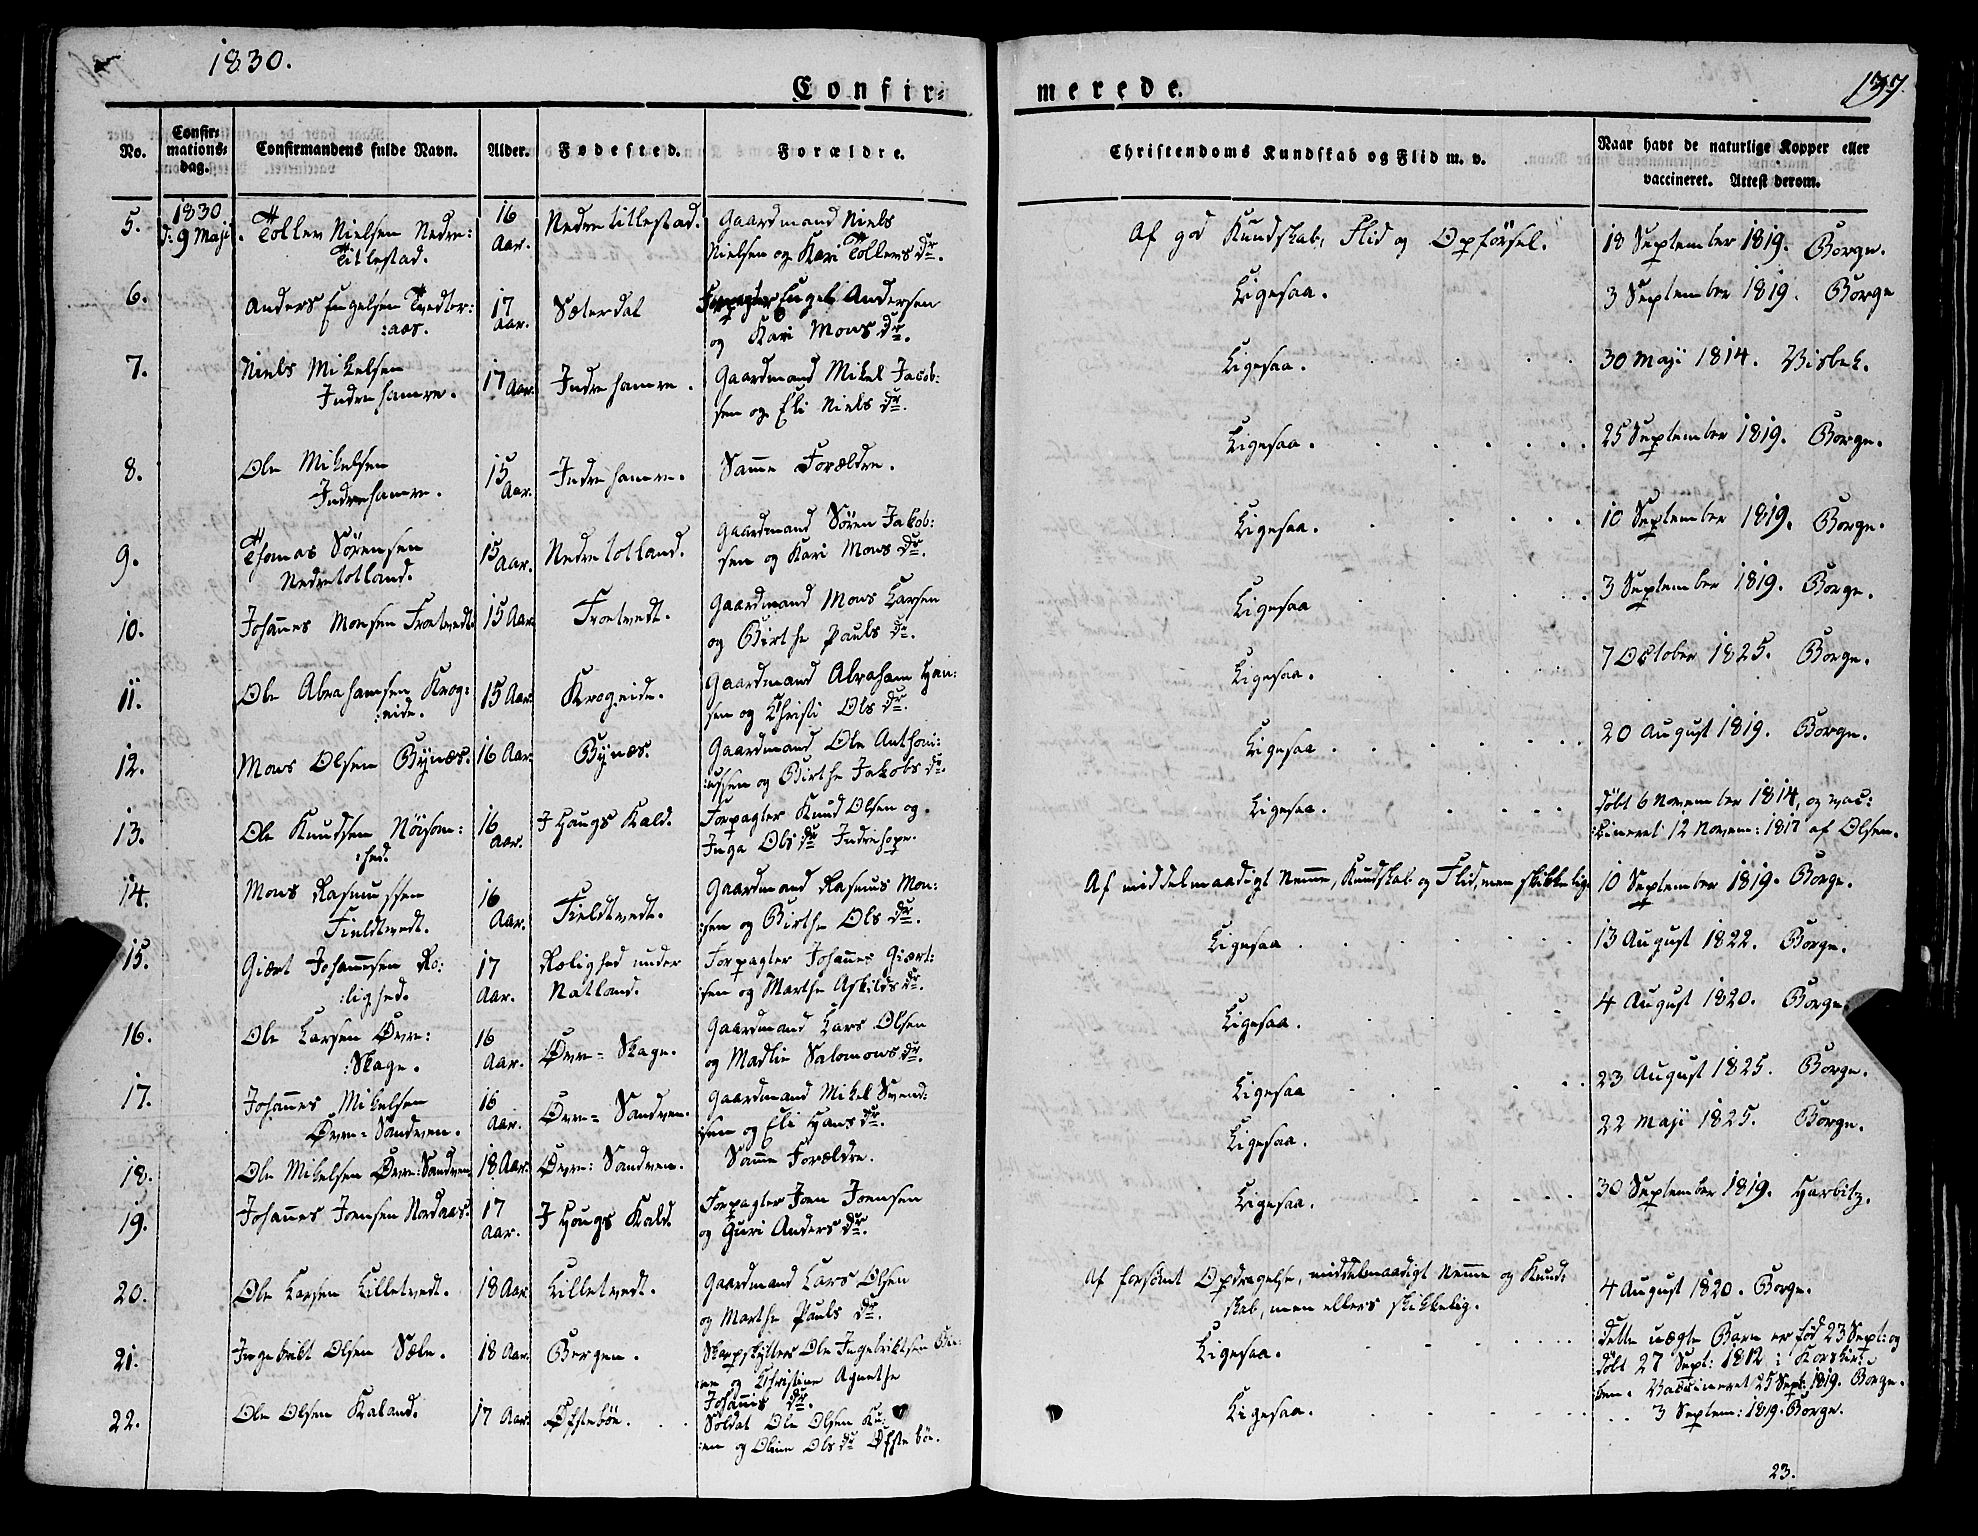 1830.
137
Confir=
merede.
No.
Confir-
mations-
dag.
Confirmandens fulde Navn.
Alder.
Fødested.
Forældre.
Christendoms Kundskab og Flid m. v.
Naar havt de naturlige Kopper eller
vaccineret. Attest derom.
5.
1830
d: 9 Maji.
Tollev Nielsen Nedre:
Titlestad.
16
Aar.
Nedretitlestad.
Gaardmand Niels
Nielsen og Kari Tollevs Dr.
Af god Kundskab, Flid og Opførsel.
18 September 1819. Borge.
6.
Anders Engelsen Tvedtor:
:aas.
17
Aar.
Sæterdal
Forpagter Engel Andersen
og Kari Mons Dr.
Ligesaa.
3 September 1819. Borge
7.
Niels Mikelsen
Indrehamre.
17 Aar.
Indrehamre.
Gaardmand Mikel Jacob:
sen og Eli Niels Dr.
Ligesaa.
30 Maji 1814. Visbek.
8.
Ole Mikelsen
Indrehamre.
15
Aar.
Indrehamre.
Samme Forældre.
Ligesaa.
25 September 1819. Borge.
9.
Thomas Sørensen
Nedretotland.
15 Aar.
Nedretotland.
Gaardmand Søren Jakob:
sen og Kari Mons Dr.
Ligesaa.
10 September 1819. Borge.
10.
Johannes Monsen Frotvedt.
15 Aar
Frotvedt.
Gaardmand Mons Larsen
og Birthe Pauls Dr.
Ligesaa
3 September 1819. Borge.
11.
Ole Abrahamsen Krog:
:eide.
15 Aar
Krogeide.
Gaardmand Abraham Han:
sen og Christi Ols Dr.
Ligesaa.
7 October 1825. Borge.
12.
Mons Olsen Bynæs.
16 Aar.
Bynæs.
Gaardmand Ole Anthoni:
:ussen og Birthe Jakobs Dr.
Ligesaa.
20 August 1819. Borge.
13.
Ole Knudsen Nøisom:
:hed.
16
Aar.
I Hougs Kald.
Forpagter Knud Olsen og
Inga Ols Dr Indrehope.
Ligesaa.
døbt 6 November 1814, og vac:
:cineret 12 Novem: 1817 af Olsen.
14.
Mons Rasmussen
Fieldtvedt.
16
Aar.
Fieldtvedt.
Gaardmand Rasmus Mon:
:sen og Birthe Ols Dr.
Af middelmaadigt Nemme, Kundskab og Flid, men skikkelig.
10 September 1819. Borge.
15.
Giært Johannesen Ro:
:lighed.
17
Aar.
Rolighed under
Natland.
Forpagter Johannes Giært:
:sen og Marthe Askilds Dr.
Ligesaa
13 August 1822. Borge.
16.
Ole Larsen Øvre:
:Skage.
16
Aar.
Øvre= Skage.
Gaardmand Lars Olsen
og Madlie Salomons Dr.
Ligesaa.
4 August 1820. Borge.
17.
Johannes Mikelsen
Øvre=Sandven.
16
Aar.
Øvre= Sandven.
Gaardmand Mikel Svend:
:sen og Eli Hans Dr.
Ligesaa
23 August 1825. Borge.
18.
Ole Mikelsen Øvre:Sandven
18 Aar.
Øvre: Sandven.
Samme Forældre.
Ligesaa.
22 Maji 1825. Borge.
19.
Johannes Joensen Nordaas.
17
Aar.
I Hougs Kald.
Forpagter Joen Joensen
og Guri Anders Dr.
Ligesaa.
30 September 1819. Harbitz.
20.
Ole Larsen Lilletvedt.
18 Aar.
Lilletvedt.
Gaardmand Lars Olsen
og Marthe Pauls Dr.
Af forsømt Opdragelse, middelmaadigt Nemme og Kund:
skab, men ellers skikkelig.
4 August 1820. Borge.
21.
Ingebrikt Olsen Sæle.
18 Aar.
Bergen.
Skarpskytter Ole Ingebriktsen
og Christine Agnethe
Johannis Dr.
Ligesaa.
Dette uægte Barn er fød 23 Sept: og
døbt 27 Sept: 1812 i Korskir:
ken. Vaccineret 25 Sept: 1819. Borge.
22.
Ole Olsen Kaland.
17 Aar.
Øfstebøe.
Soldat Ole Olsen
og Oline Ols Dr Øfstebøe.
Ligesaa.
3 Septem: 1819. Borge.
23.